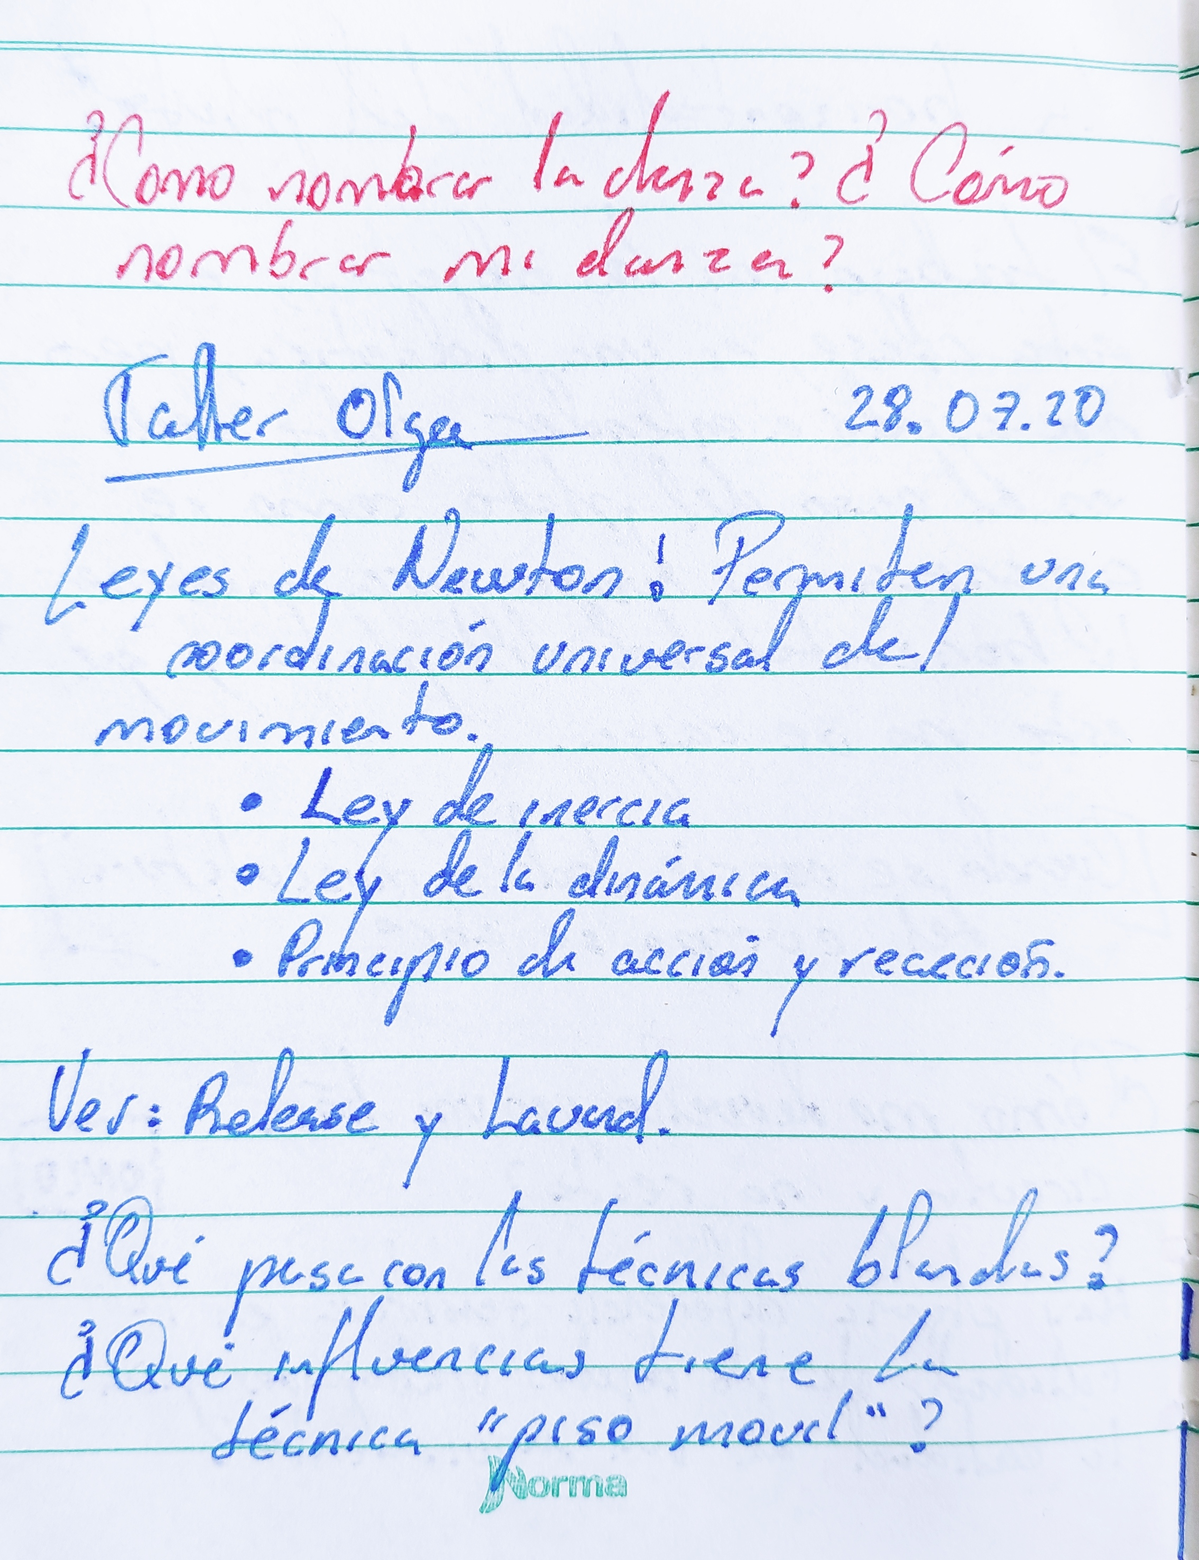 ¿Como nombrar la danza? ¿Cómo
nombrar mi danza?
Taller Olga 28.07.20
Leyes de Newton: Permiten una
coordinación universal del
movimiento.
• Ley de inercia
• Ley de la dinámica
• Principio de acción y reacción.
Ver: Release y
¿Qué pasa con las técnicas blandas?
¿Qué influencias tiene la
técnica "piso movil"?
Norma